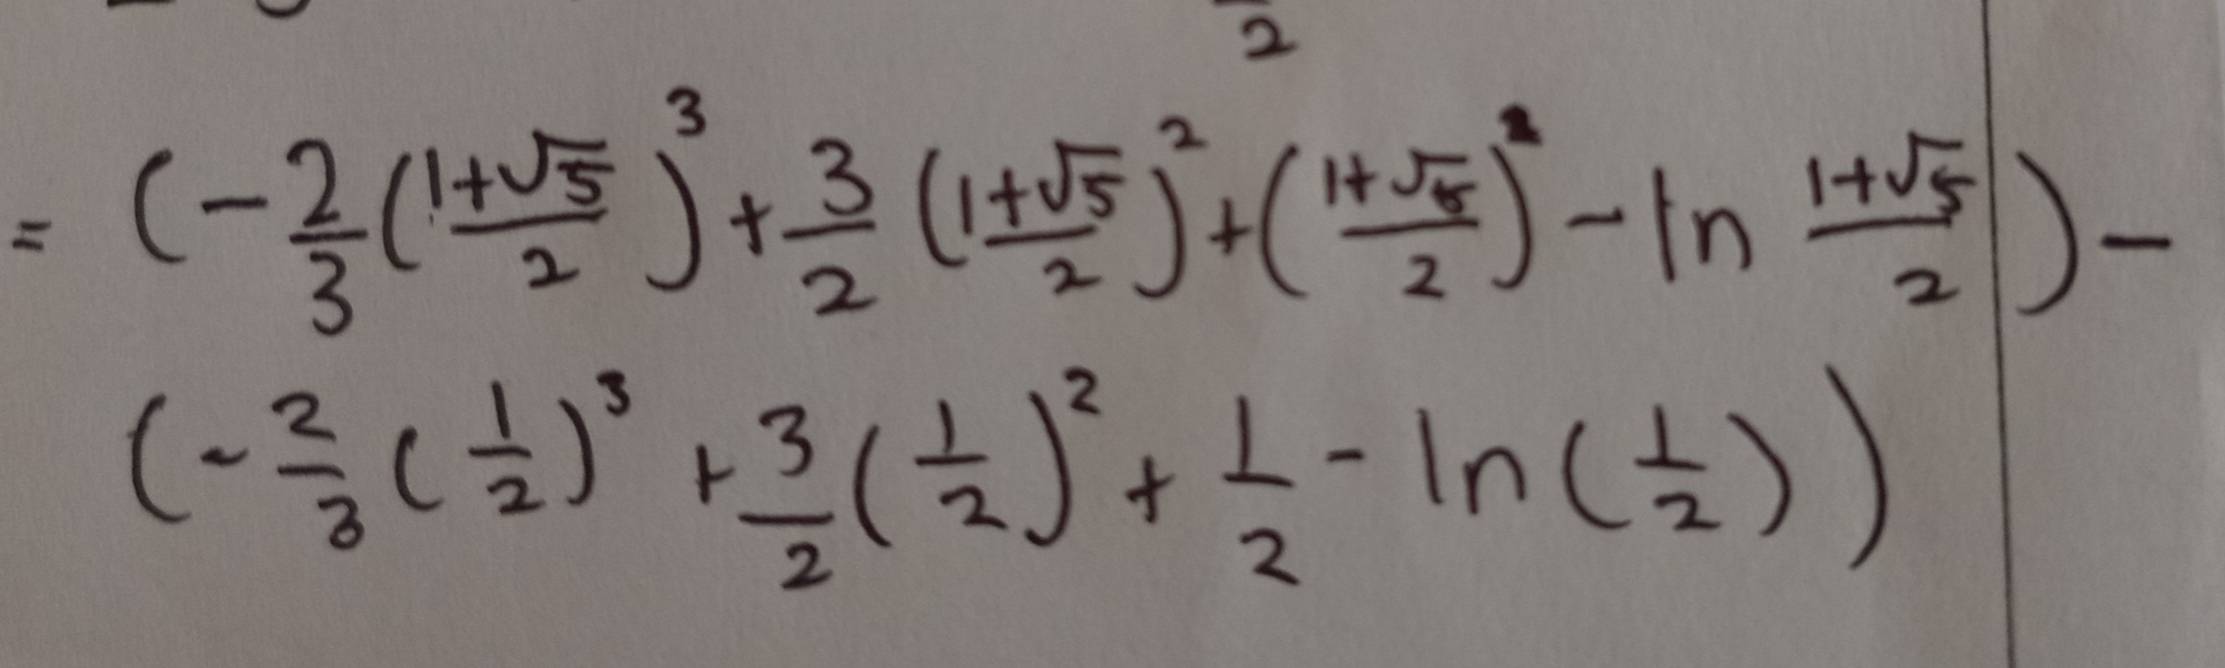 2
= (-2/3((1+√5)/2)^3 + 3/2((1+√5)/2)^2 + ((1+√5)/2) - ln (1+√5)/2) -
(-2/3(1/2)^3 + 3/2(1/2)^2 + 1/2 - ln(1/2))